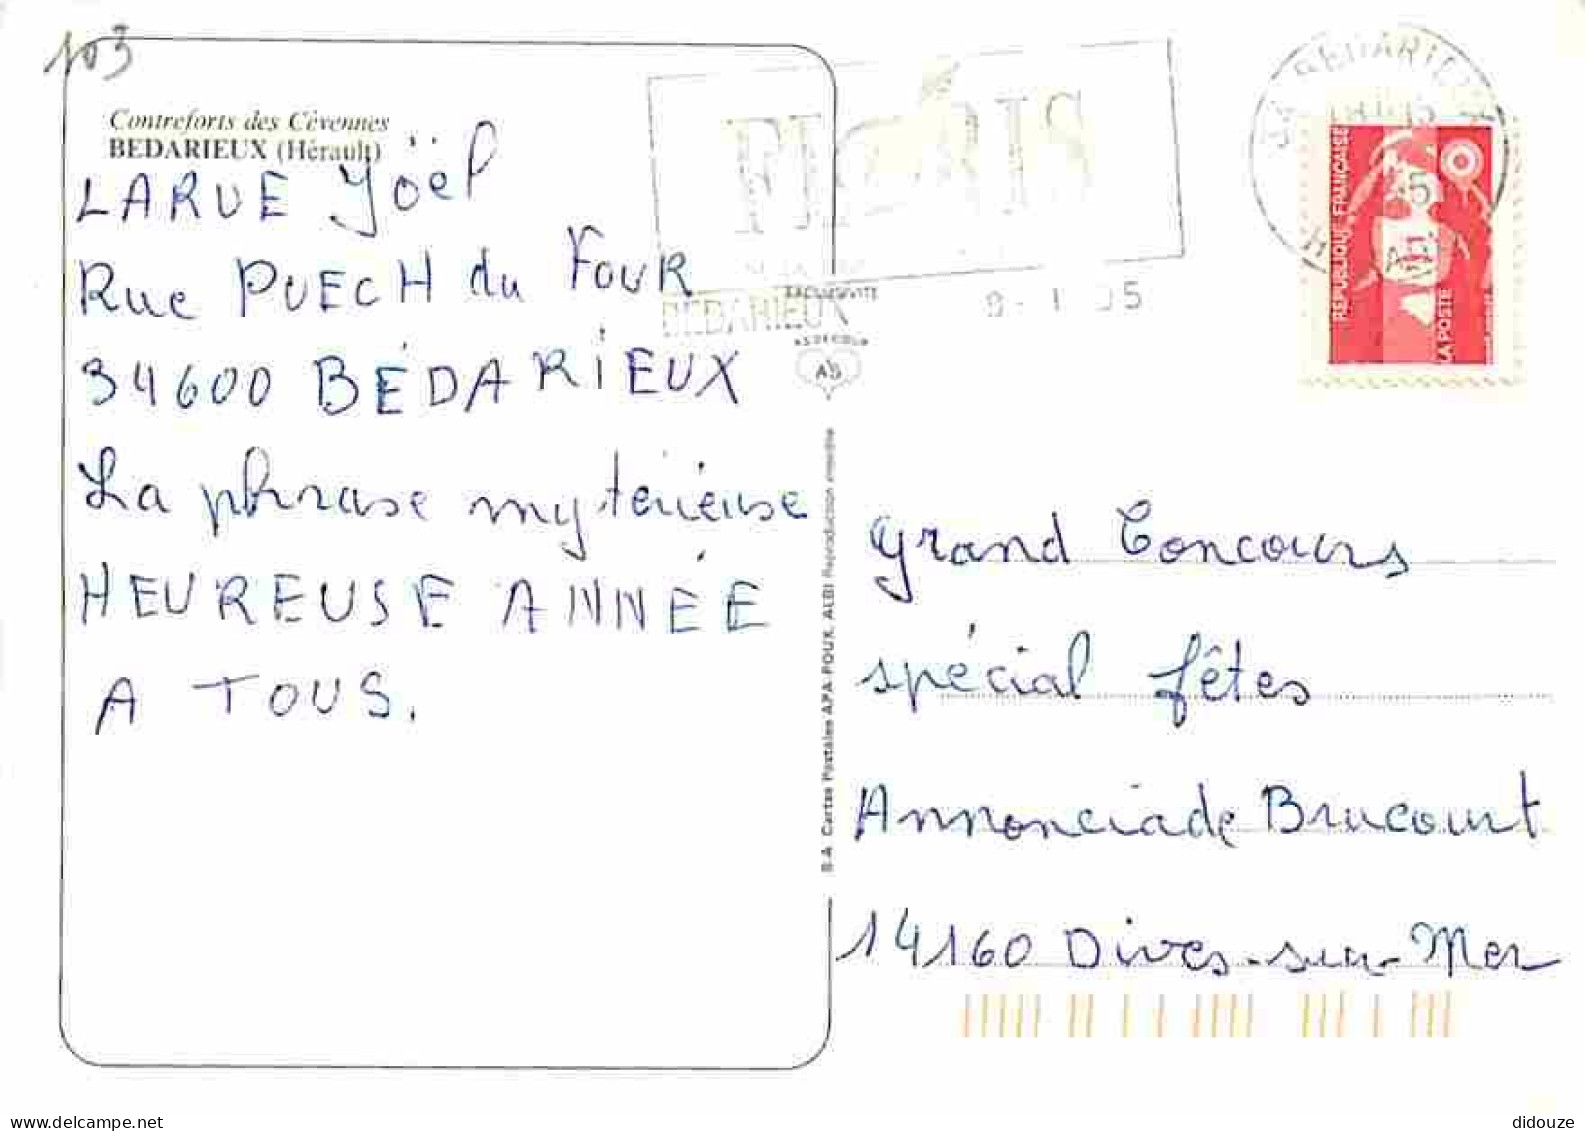 103
Contreforts des Cévennes
BEDARIEUX (Hérault)
LARUE Joël
Rue PUECH du FOUR
34600 BÉDARIEUX
La phrase mystérieuse
HEUREUSE ANNÉE
A TOUS.
BEDARIEUX
EXCLUSIVITE
AS
B.A. Cartes Postales APA-POUX, ALBI Reproduction interdite
BEDARIEUX
REPUBLIQUE FRANÇAISE
LA POSTE
Grand Concours
spécial fêtes
Annonciade Brucourt
14160 Dives-sur-Mer
delcampe.net
didouze